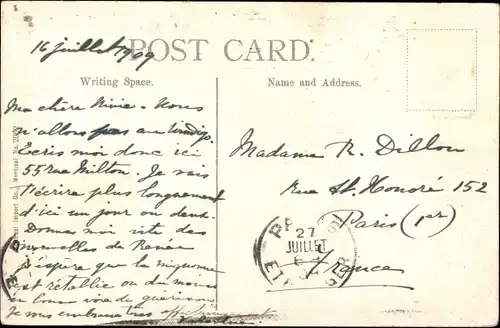 16 juillet 1909
POST CARD.
Writing Space.
Name and Address.
Ma chère Ninie - Nous
n'allons pas au
Ecris moi donc ici
55 rue Milton. Je vais
t'écrire plus longuement
d'ici un jour ou deux.
Donne moi vite des
nouvelles de Renée
j'espère que la mignonne
est rétablie ou du moins
en bonne voie de guérison
Je vous embrasse
Madame R. Dillon
Rue St. Honoré 152
Paris (1er)
France
PARIS
27
JUILLET
ETRANGER
Import Co., Montreal. No.